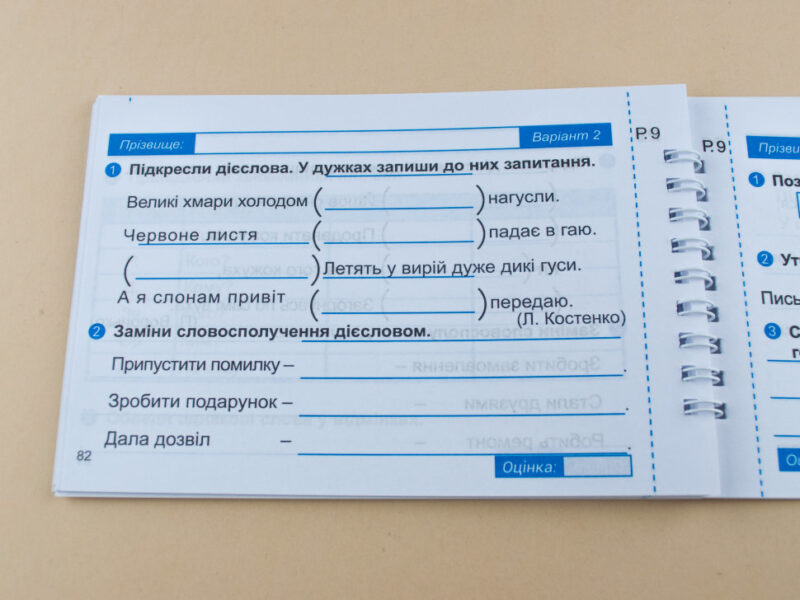 Прізвище: Варіант 2 Р. 9
1 Підкресли дієслова. У дужках запиши до них запитання.
Великі хмари холодом ( ) нагусли.
Червоне листя ( ) падає в гаю.
( ) Летять у вирій дуже дикі гуси.
А я слонам привіт ( ) передаю.
(Л. Костенко)
2 Заміни словосполучення дієсловом.
Припустити помилку – .
Зробити подарунок – .
Дала дозвіл – .
82
Оцінка:
Р. 9
1
2
3